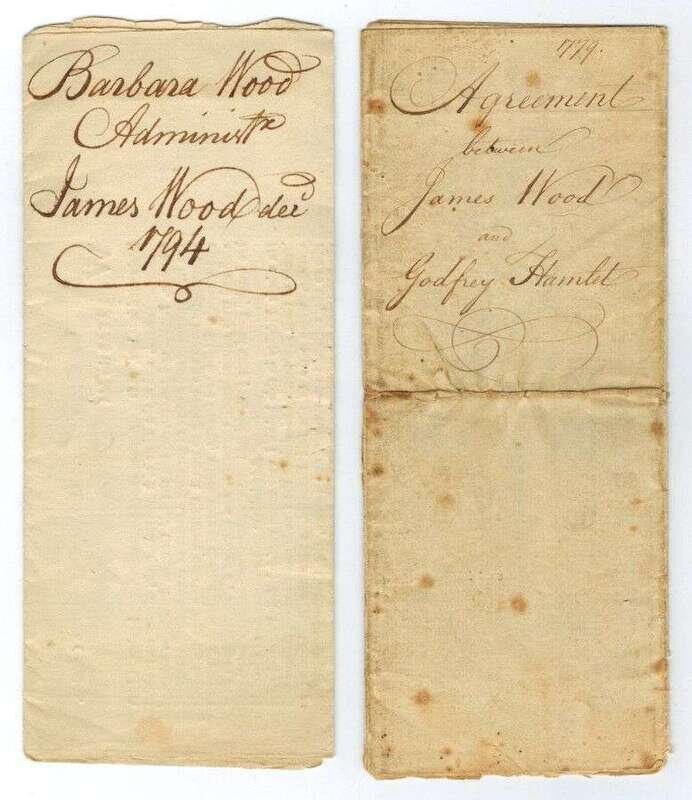 Barbara Wood
Administrx
James Wood decd
1794
1779.
Agreement
between
James Wood
and
Godfrey Hamlet